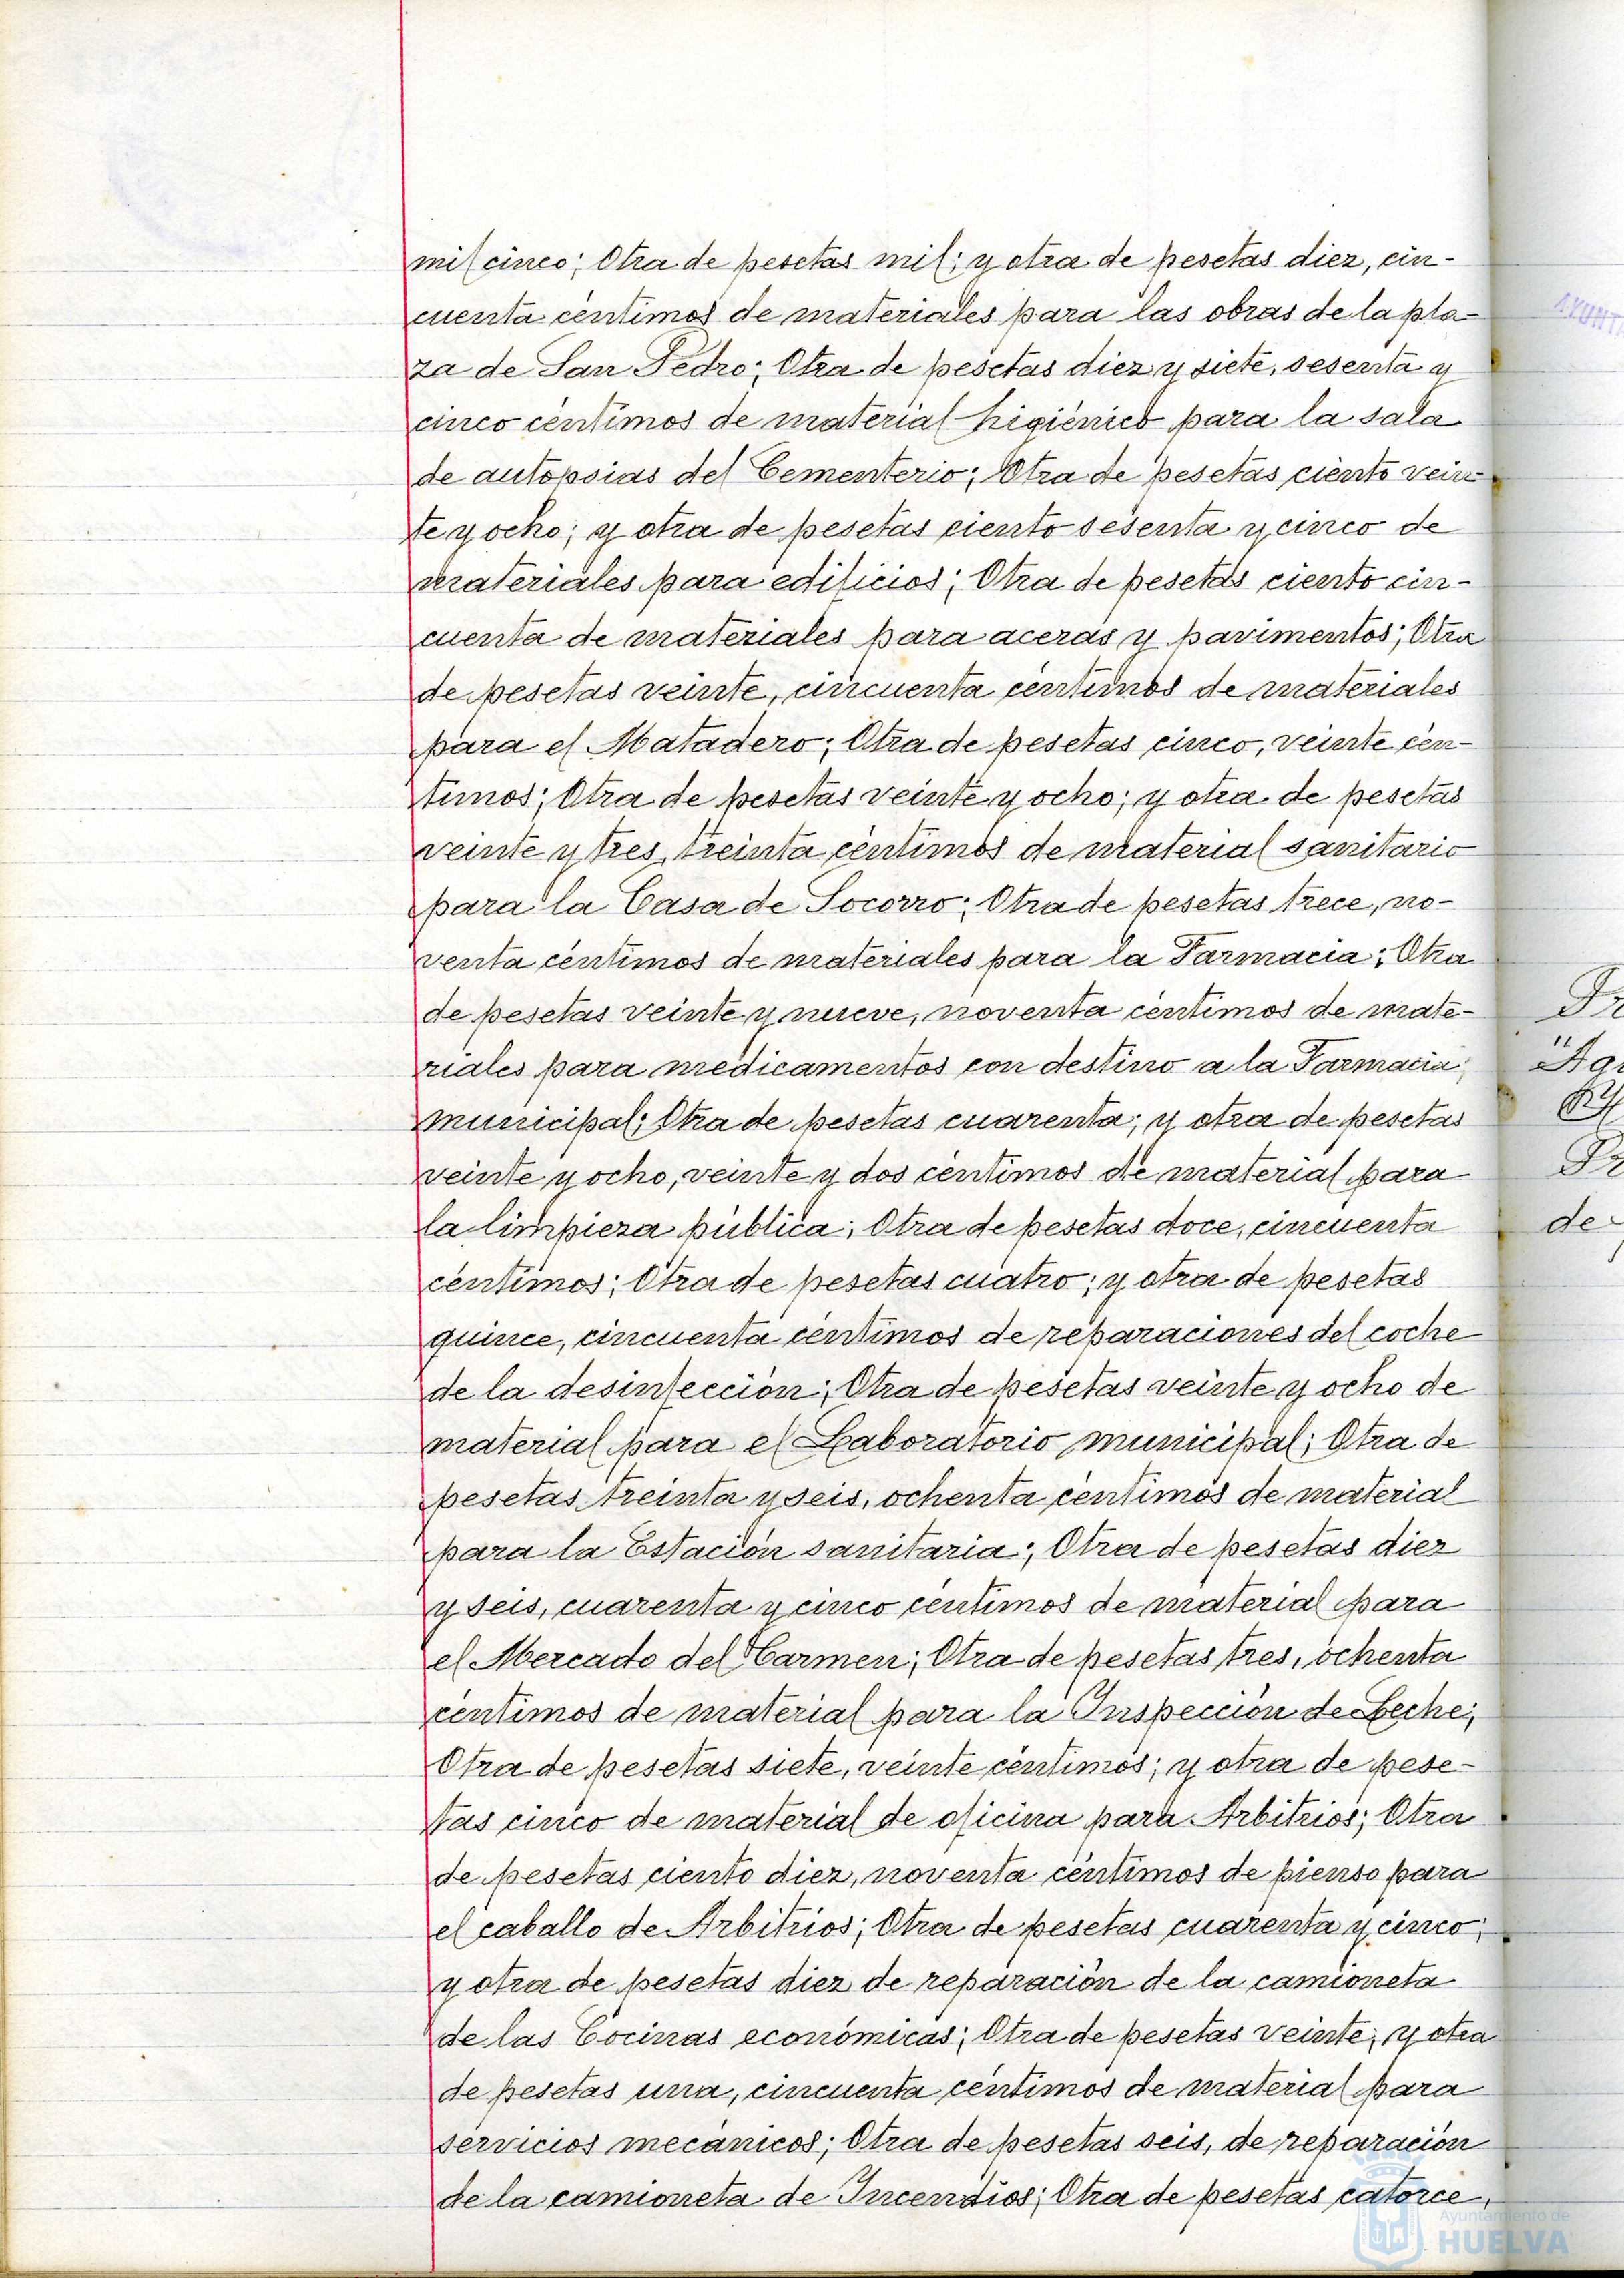 mil cinco; Otra de pesetas mil; y otra de pesetas diez, cin-
cuenta céntimos de materiales para las obras de la pla-
za de San Pedro; Otra de pesetas diez y siete, sesenta y
cinco céntimos de material higiénico para la sala
de autopsias del Cementerio; Otra de pesetas ciento vein-
te y ocho; y otra de pesetas ciento sesenta y cinco de
materiales para edificios; Otra de pesetas ciento cin-
cuenta de materiales para aceras y pavimentos; Otra
de pesetas veinte, cincuenta céntimos de materiales
para el Matadero; Otra de pesetas cinco, veinte cén-
timos; Otra de pesetas veinte y ocho; y otra de pesetas
veinte y tres, treinta céntimos de material sanitario
para la Casa de Socorro; Otra de pesetas trece, no-
venta céntimos de materiales para la Farmacia; Otra
de pesetas veinte y nueve, noventa céntimos de mate-
riales para medicamentos con destino a la Farmacia
municipal; Otra de pesetas cuarenta; y otra de pesetas
veinte y ocho, veinte y dos céntimos de material para
la limpieza pública; Otra de pesetas doce, cincuenta
céntimos; Otra de pesetas cuatro; y otra de pesetas
quince, cincuenta céntimos de reparaciones del coche
de la desinfección; Otra de pesetas veinte y ocho de
material para el Laboratorio municipal; Otra de
pesetas treinta y seis, ochenta céntimos de material
para la Estación sanitaria; Otra de pesetas diez
y seis, cuarenta y cinco céntimos de material para
el Mercado del Carmen; Otra de pesetas tres, ochenta
céntimos de material para la Inspección de Leche;
Otra de pesetas siete, veinte céntimos; y otra de pese-
tas cinco de material de oficina para Arbitrios; Otra
de pesetas ciento diez, noventa céntimos de pienso para
el caballo de Arbitrios; Otra de pesetas cuarenta y cinco;
y otra de pesetas diez de reparación de la camioneta
de las Cocinas económicas; Otra de pesetas veinte; y otra
de pesetas una, cincuenta céntimos de material para
servicios mecánicos; Otra de pesetas seis, de reparación
de la camioneta de Incendios; Otra de pesetas catorce,
Ayuntamiento de
HUELVA